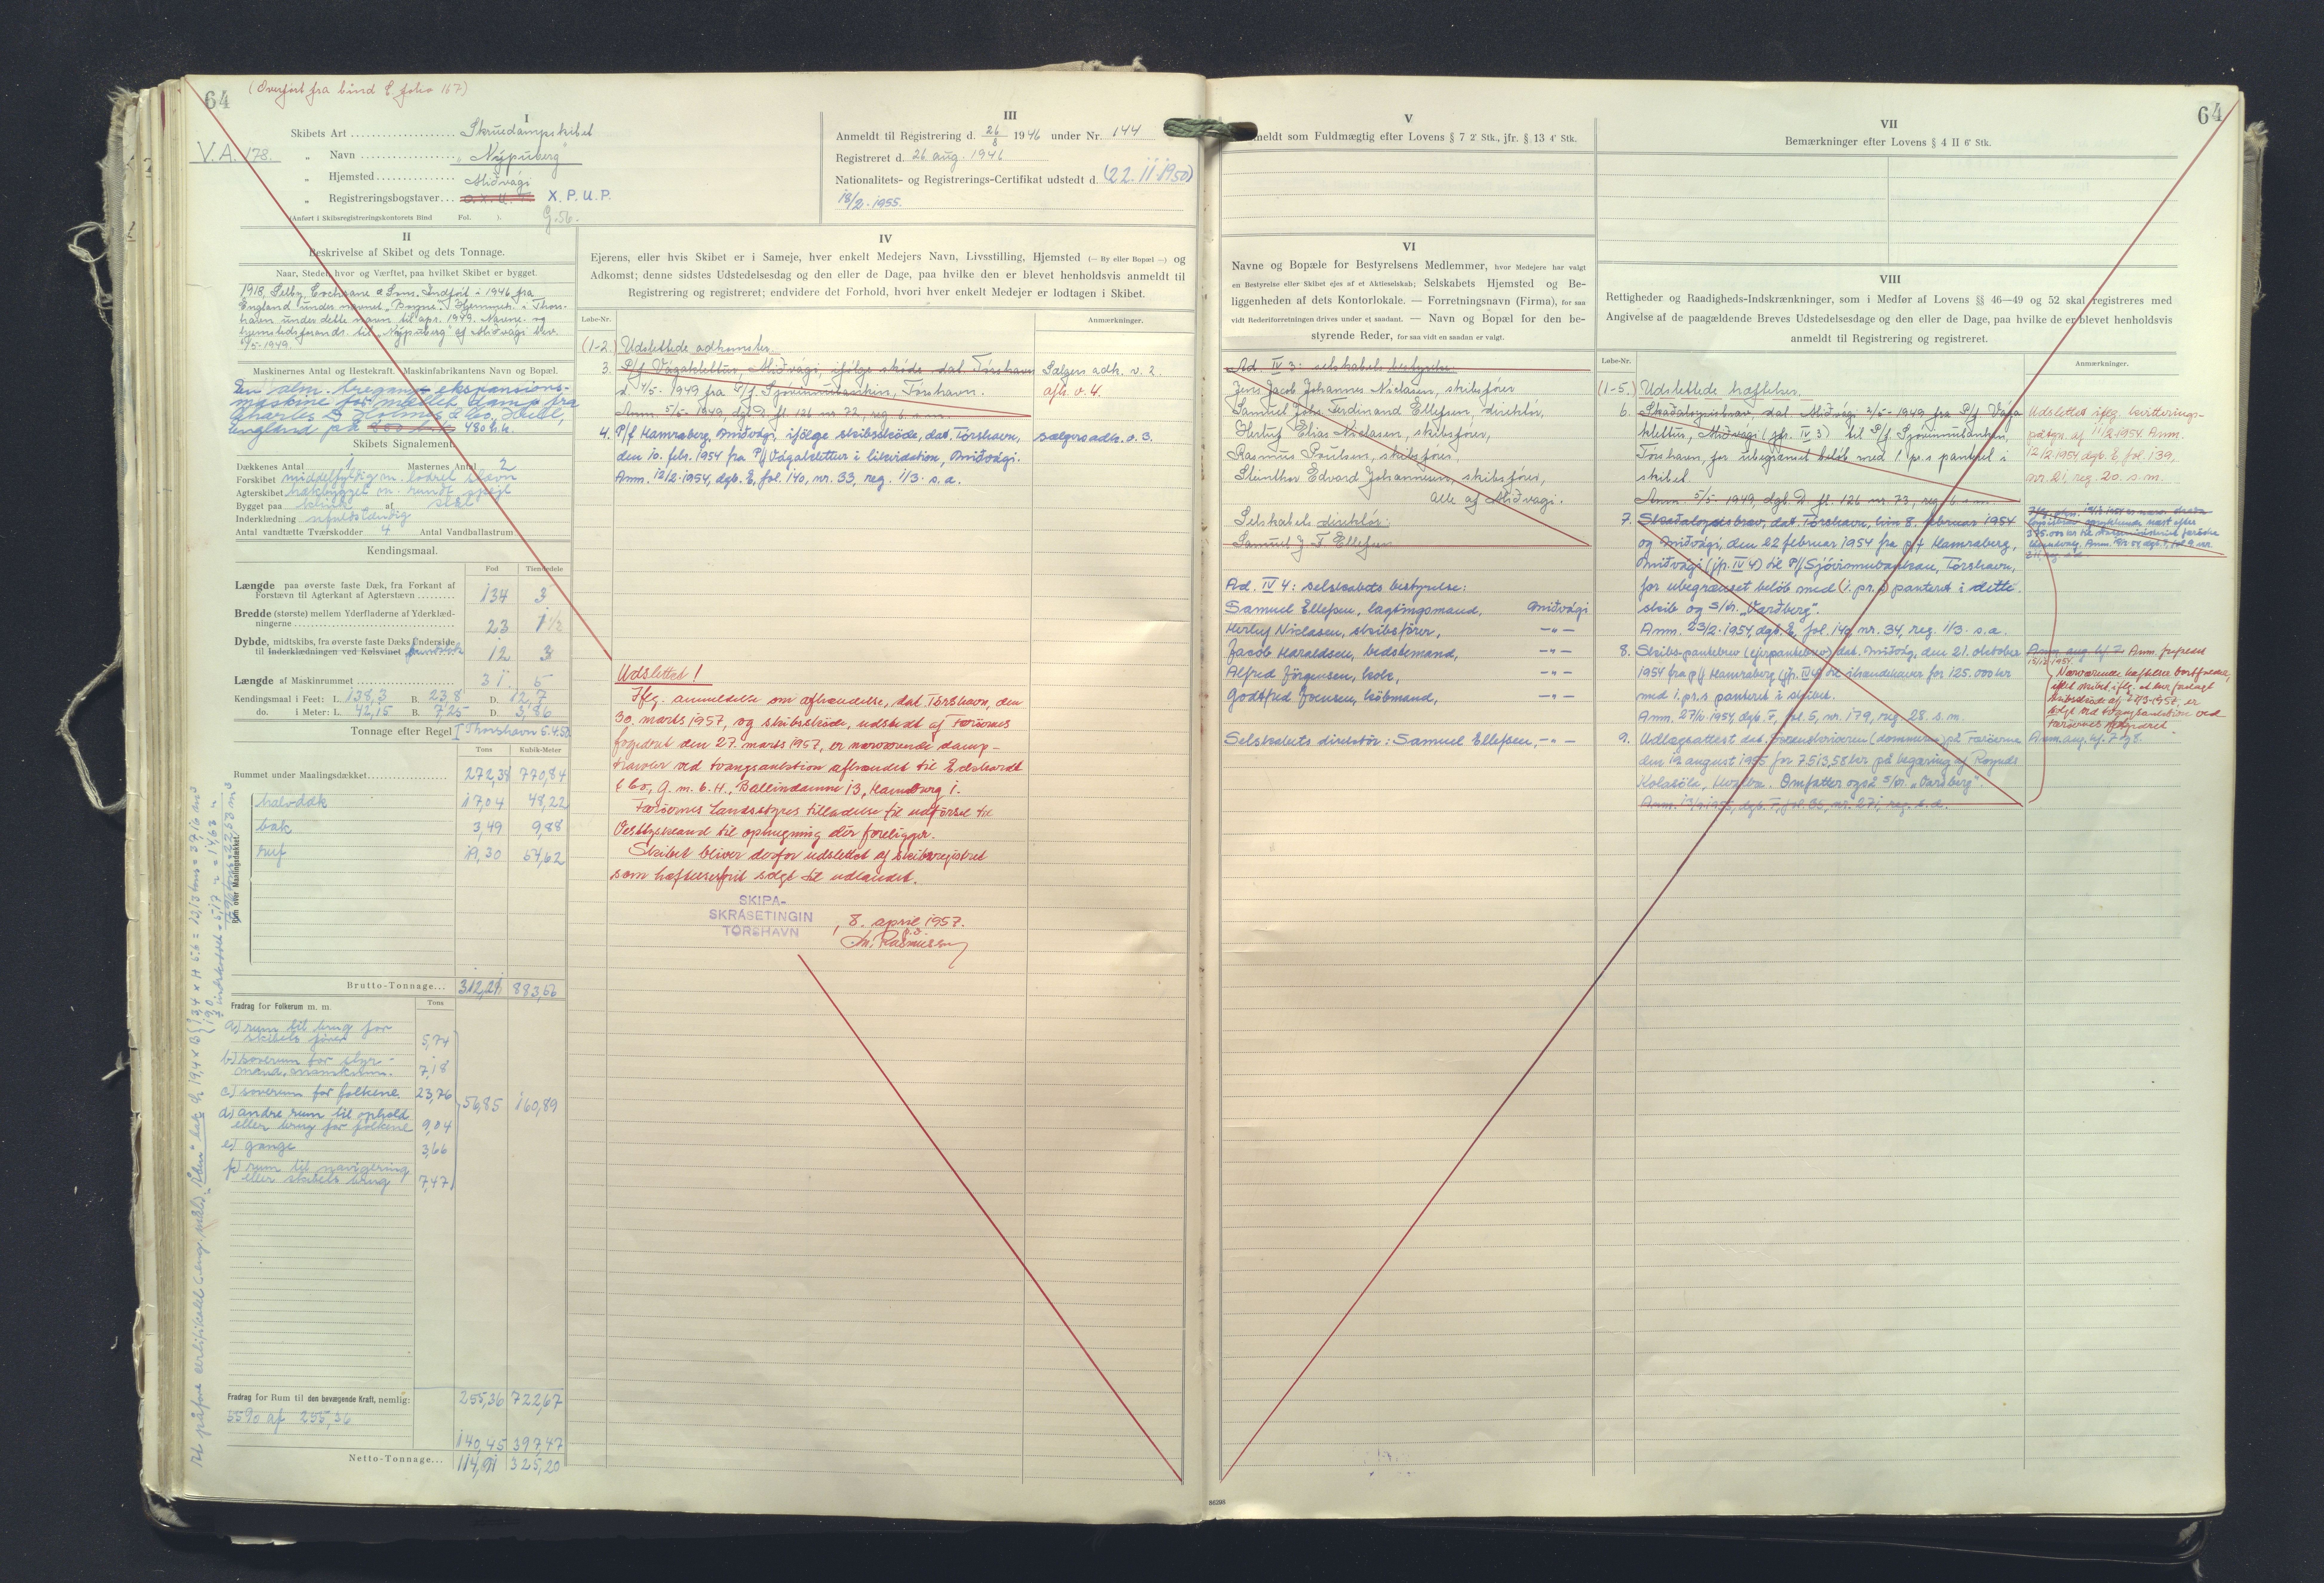 64
(Overført fra bind E. folio 167)
V.A. 178.
I
Skibets Art Skruedampskibet
" Navn "Nýpuberg"
" Hjemsted Miðvági
" Registreringsbogstaver X.P.U.P.
(Anført i Skibsregistreringskontorets Bind Fol. ).
G.56.
II
Beskrivelse af Skibet og dets Tonnage.
Naar, Stedet hvor og Værftet, paa hvilket Skibet er bygget.
1918, Selby, Cochrane & Sons. Indført i 1946 fra
England under navnet "Boyne". Hjemmeh. i Thors-
havn under dette navn til apr. 1949. Navne- og
hjemstedsforandr. til "Nýpuberg" af Miðvági
/5-1949.
Maskinernes Antal og Hestekraft. Maskinfabrikantens Navn og Bopæl.
En alm. tregangs ekspansions-
maskine for mættet damp fra
Charles D. Holmes & Co., Hull,
England på 480 h.k.
Skibets Signalement.
Dækkenes Antal 1 Masternes Antal 2
Forskibet middelfyldig m. lodret stævn
Agterskibet hækbygget m. rundt spejl
Bygget paa klink af stål
Inderklædning ufuldstændig
Antal vandtætte Tværskodder 4 Antal Vandballastrum
Kendingsmaal.
Fod Tiendedele
Længde paa øverste faste Dæk, fra Forkant af
Forstævn til Agterkant af Agterstævn 134 3
Bredde (største) mellem Yderfladerne af Yderklæd-
ningerne 23 1½
Dybde, midtskibs, fra øverste faste Dæks Underside
til Inderklædningen ved Kølsvinet bundstok 12 3
Længde af Maskinrummet 31 5
Kendingsmaal i Feet: L. 138,3 B. 23,8 D. 12,7
do. i Meter: L. 42,15 B. 7,25 D. 3,86
Tonnage efter Regel I Thorshavn 5.4.50
Tons Kubik-Meter
Rummet under Maalingsdækket 272,38 770,84
Rum over Maalingsdækket.
halvdæk 17,04 48,22
bak 3,49 9,88
ruf 19,30 54,62
Brutto-Tonnage 312,21 883,56
Fradrag for Folkerum m. m. Tons
a) rum til brug for
skibets fører 5,74
b) soverum for styr-
mand, 7,18
c) soverum for folkene 23,76
56,85 160,89
d) andre rum til ophold
eller brug for folkene 9,04
e) gange 3,66
f) rum til navigering
eller skibets brug 7,47
255,36 722,67
Fradrag for Rum til den bevægende Kraft, nemlig:
55% af 255,36
140,45 397,47
Netto-Tonnage 114,91 325,20
III
Anmeldt til Registrering d. 26/8 1946 under Nr. 144
Registreret d. 26 aug. 1946
Nationalitets- og Registrerings-Certifikat udstedt d. (22.11.1950)
18/2.1955.
IV
Ejerens, eller hvis Skibet er i Sameje, hver enkelt Medejers Navn, Livsstilling, Hjemsted (— By eller Bopæl —) og
Adkomst; denne sidstes Udstedelsesdag og den eller de Dage, paa hvilke den er blevet henholdsvis anmeldt til
Registrering og registreret; endvidere det Forhold, hvori hver enkelt Medejer er lodtagen i Skibet.
Løbe-Nr. Anmærkninger.
(1-2.) Udslettede adkomster.
3. P/f Vágaklettur, Miðvági, ifølge skøde, dat. Tórshavn Sælgers adh. v. 2.
d. 4/5- 1949 fra P/f Sjóvinnubankin, Tórshavn. afh. v. 4.
Anm. 5/5-1949, dgb. D. fl. 126 nr. 72, reg. 6. s.m.
4. P/f Hamraberg, Miðvági, ifölge skibsskøde, dat. Tórshavn, Sælgers adh. v. 3.
den 10. febr. 1954 fra P/f Vágaklettur i likvidation, Miðvági.
Anm. 12/2.1954, dgb. E, fol. 140, nr. 33, reg. 1/3. s.a.
Udslettet!
Iflg. anmeldelse om afhændelse, dat. Tórshavn, den
30. marts 1957, og skibsskøde, udstedt af Færøernes
fogedret den 27. marts 1957, er nærværende damp-
trawler ved tvangsauktion afhændet til Eckhardt
& Co., G. m. b. H., Ballindamm 13, Hamburg 1.
Færøernes Landsstyres tilladelse til udførsel til
Vesttyskland til ophugning dér foreligger.
Skibet bliver derfor udslettet af skibsregistret
som hæftelsesfrit solgt til udlandet.
SKIPA-
SKRÁSETINGIN
TÓRSHAVN
, 8. april 1957.
Rasmussen
V
Anmeldt som Fuldmægtig efter Lovens § 7 2' Stk., jfr. § 13 4' Stk.
VI
Navne og Bopæle for Bestyrelsens Medlemmer, hvor Medejere har valgt
en Bestyrelse eller Skibet ejes af et Aktieselskab; Selskabets Hjemsted og Be-
liggenheden af dets Kontorlokale. — Forretningsnavn (Firma), for saa
vidt Rederiforretningen drives under et saadant. — Navn og Bopæl for den be-
styrende Reder, for saa vidt en saadan er valgt.
Ad. IV 3: selskabets bestyrelse:
Jens Jacob Johannes Niclasen, skibsfører
Samuel Johs. Ferdinand Ellefsen, direktör,
Herluf Elias Niclasen, skibsfører,
Rasmus Poulsen, skibsfører,
Steinthor Edvard Johannesen, skibsfører,
alle af Miðvági.
Selskabets direktör:
Samuel J F Ellefsen
Ad. IV 4: selskabets bestyrelse:
Samuel Ellefsen, lagtingsmand, Miðvági
Herluf Niclasen, skibsfører, —"—
Jacob Haraldsen, bedstemand, —"—
Alfred Jörgensen, kok, —"—
Godtfred Joensen, købmand, —"—
Selskabets direktör: Samuel Ellefsen, —"—
VII
Bemærkninger efter Lovens § 4 II 6' Stk.
64
VIII
Rettigheder og Raadigheds-Indskrænkninger, som i Medfør af Lovens §§ 46—49 og 52 skal registreres med
Angivelse af de paagældende Breves Udstedelsesdage og den eller de Dage, paa hvilke de er blevet henholdsvis
anmeldt til Registrering og registreret.
Løbe-Nr. Anmærkninger.
(1-5.) Udslettede hæftelser.
6. Skadesløsbrev, dat. Miðvági 4/5-1949 fra P/f Vága
klettur, Miðvági (jfr. IV 3) til P/f Sjóvinnubankin,
Tórshavn, for ubegrænset beløb med 1. pr.s panteret i
skibet.
Anm. 5/5-1949, dgb. D. fl. 126 nr. 73, reg. 6. s.m.
Udslettet iflg. kvitterings-
påtegn. af 11/2 1954. Anm.
12/2 1954 dgb. E. fol. 139,
nr. 21, reg. 20. s.m.
7. Skadesløsbrev, dat. Tórshavn, den 8. februar 1954
og Miðvági, den 22 februar 1954 fra p/f Hamraberg,
Miðvági (jfr. IV 4) til P/f Sjóvinnubankin, Tórshavn,
for ubegrænset beløb med (1. pr.) panteret i dette
skib og S/tr. "Varðberg".
Anm. 23/2.1954, dgb. E, fol. 140, nr. 34, reg. 1/3. s.a.
8. Skibspantebrev (ejerpantebrev) dat. Miðvág, den 21. oktober
1954 fra p/f Hamraberg (jfr. IV 4) til ihændehaver for 125.000 kr
med 1. pr.s panteret i skibet.
Anm. 27/11.1954, dgb. F, fol. 5, nr. 179, reg. 28. s.m.
Nærværende hæftelse bortfaldet,
idet skibet iflg. et her forlagt
skibsskøde af 27/3-1957, er
solgt ved tvangsauktion ved
Færøernes fogedret
9. Udlægsattest dat. Sorenskriveren (dommeren) på Færøerne
den 12 august 1955 for 7513,58 kr på begæring af
Kolasöla, Omfatter også S/tr. "Varðberg".
86298